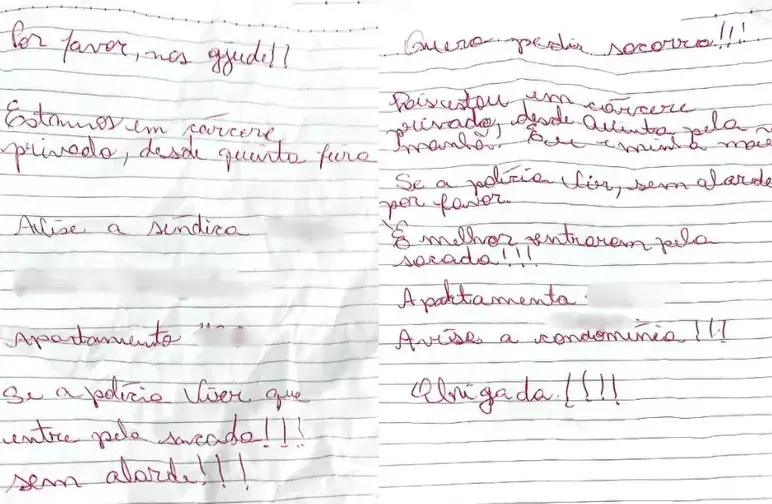 Por favor, nos ajude!!
Estamos em cárcere
privado, desde quinta feira
Avise a síndica
Apartamento
Se a polícia vier que
entre pela sacada!!!
sem alarde!!!
Quero pedir socorro!!!
Pois estou em cárcere
privado, desde Quinta pela
manhã. Eu e minha mãe
Se a polícia vier, sem alarde
por favor.
É melhor entrarem pela
sacada!!!
Apartamento
Avise a condomínio!!!
Obrigada!!!!